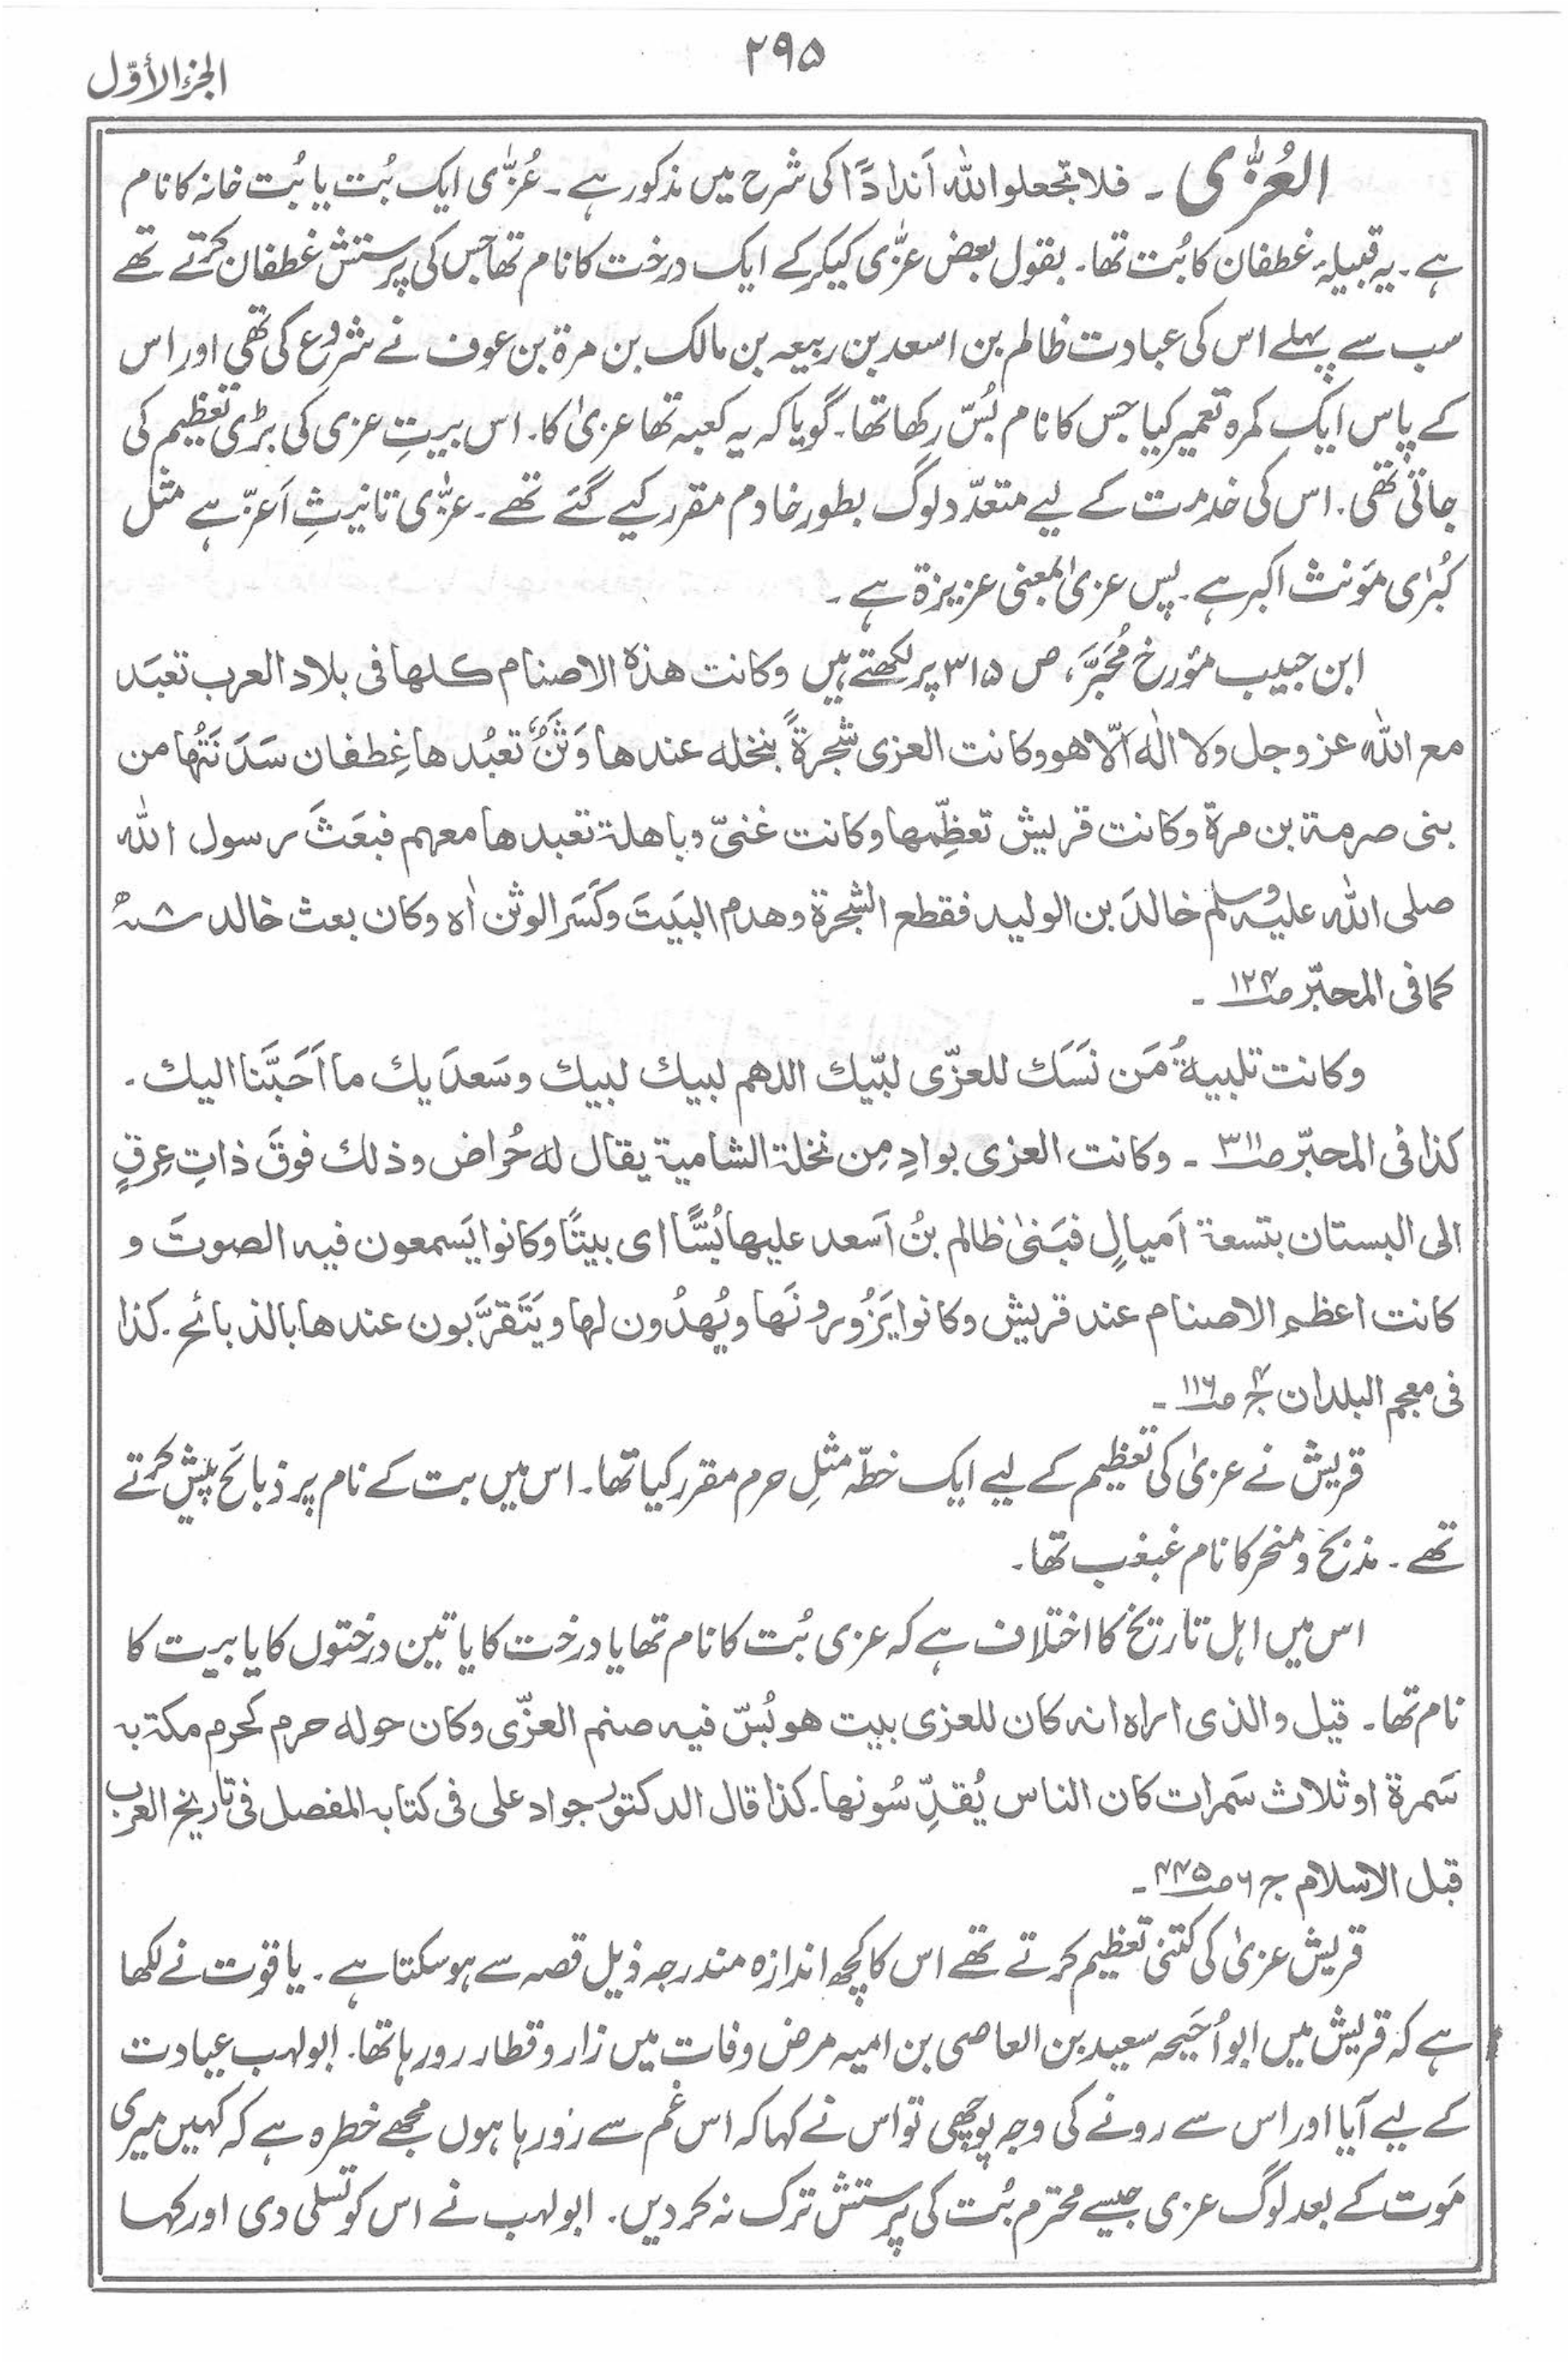 ۲۹۵
الجزء الأوّل
العُزّٰی ۔ فلا تجعلوا للّٰہ اَندادًا کی شرح میں مذکور ہے ۔ عُزّٰی ایک بُت یا بُت خانہ کا نام
ہے ۔ یہ قبیلۂ غطفان کا بُت تھا۔ بقول بعض عزّٰی کیکر کے ایک درخت کا نام تھا جس کی پرستش غطفان کرتے تھے
سب سے پہلے اس کی عبادت ظالم بن اسعد بن ربیعہ بن مالک بن مرۃ بن عوف نے شروع کی تھی اور اس
کے پاس ایک کمرہ تعمیر کیا جس کا نام بُسّ رکھا تھا۔ گویا کہ یہ کعبہ تھا عزیٰ کا۔ اس بیتِ عزی کی بڑی تعظیم کی
جاتی تھی۔ اس کی خدمت کے لیے متعدّد لوگ بطور خادم مقرر کیے گئے تھے۔ عزّٰی تانیثِ اَعزّ ہے مثل
کُبرٰی مؤنث اکبر ہے۔ پس عزیٰ بمعنی عزیزۃ ہے ۔
ابن حبیب مؤرخ مُحَبَّر، ص ۳۱۵ پر لکھتے ہیں وکانت ھذہ الاصنام کلھا فی بلاد العرب تعبَد
مع اللّٰہ عز وجل ولا الٰہ الّا ھو وکانت العزی شجرۃً بنخلہ عندھا وَثَنٌ تعبُدھا غِطفان سَدَنَتُہا من
بنی صرمۃ بن مرۃ وکانت قریش تعظِّمہا وکانت غنیّ و باھلۃ تعبدھا معہم فبعَثَ رسول اللّٰہ
صلی اللّٰہ علیہ وسلم خالدَ بن الولید فقطع الشجرۃ وھدم البیَتَ وکَسَر الوثن اٰہ وکان بعث خالد ۸سنہ
کما فی المحبّر ص۱۲۴ ۔
وکانت تلبیۃُ مَن نَسَکَ للعزّی لبّیک اللھم لبیک لبیک وسَعدَیک ما اَحَبَّنا الیک ۔
کذا فی المحبّر ص۳۱۱ ۔ وکانت العزی بوادٍ مِن نخلۃ الشامیۃ یقال لہ حُراض وذلک فوقَ ذاتِ عِرقٍ
الی البستان بتسعۃ اَمیالٍ فبَنیٰ ظالم بنُ اَسعد علیھا بُسًّا ای بیتًا وکانوا یَسمعون فیہ الصوتَ و
کانت اعظم الاصنام عند قریش وکانوا یَزُورونَھا ویُھدُون لہا ویَتَقَرَّبون عندھا بالذبائح۔ کذا
فی معجم البلدان ج۴ ص۱۱۶ ۔
قریش نے عزیٰ کی تعظیم کے لیے ایک خطّہ مثلِ حرم مقرر کیا تھا۔ اس میں بت کے نام پر ذبائح پیش کرتے
تھے ۔ مذبح و منحر کا نام غبغب تھا۔
اس میں اہل تاریخ کا اختلاف ہے کہ عزی بُت کا نام تھا یا درخت کا یا تین درختوں کا یا بیت کا
نام تھا۔ قیل والذی اراہ انہ کان للعزی بیت ھو بُسّ فیہ صنم العزّی وکان حولہ حرم کحرم مکۃ بہ
سَمرۃ او ثلاث سَمرات کان الناس یُقدِّسُونہا۔ کذا قال الدکتور جواد علی فی کتابہ المفصل فی تاریخ العرب
قبل الاسلام ج۶ ص۴۴۵ ۔
قریش عزیٰ کی کتنی تعظیم کرتے تھے اس کا کچھ اندازہ مندرجہ ذیل قصہ سے ہو سکتا ہے ۔ یاقوت نے لکھا
ہے کہ قریش میں ابو اُحَیحہ سعید بن العاصی بن امیہ مرض وفات میں زار و قطار رو رہا تھا۔ ابولہب عیادت
کے لیے آیا اور اس سے رونے کی وجہ پوچھی تو اس نے کہا کہ اس غم سے رو رہا ہوں مجھے خطرہ ہے کہ کہیں میری
مَوت کے بعد لوگ عزی جیسے محترم بُت کی پرستش ترک نہ کر دیں۔ ابولہب نے اس کو تسلی دی اور کہا